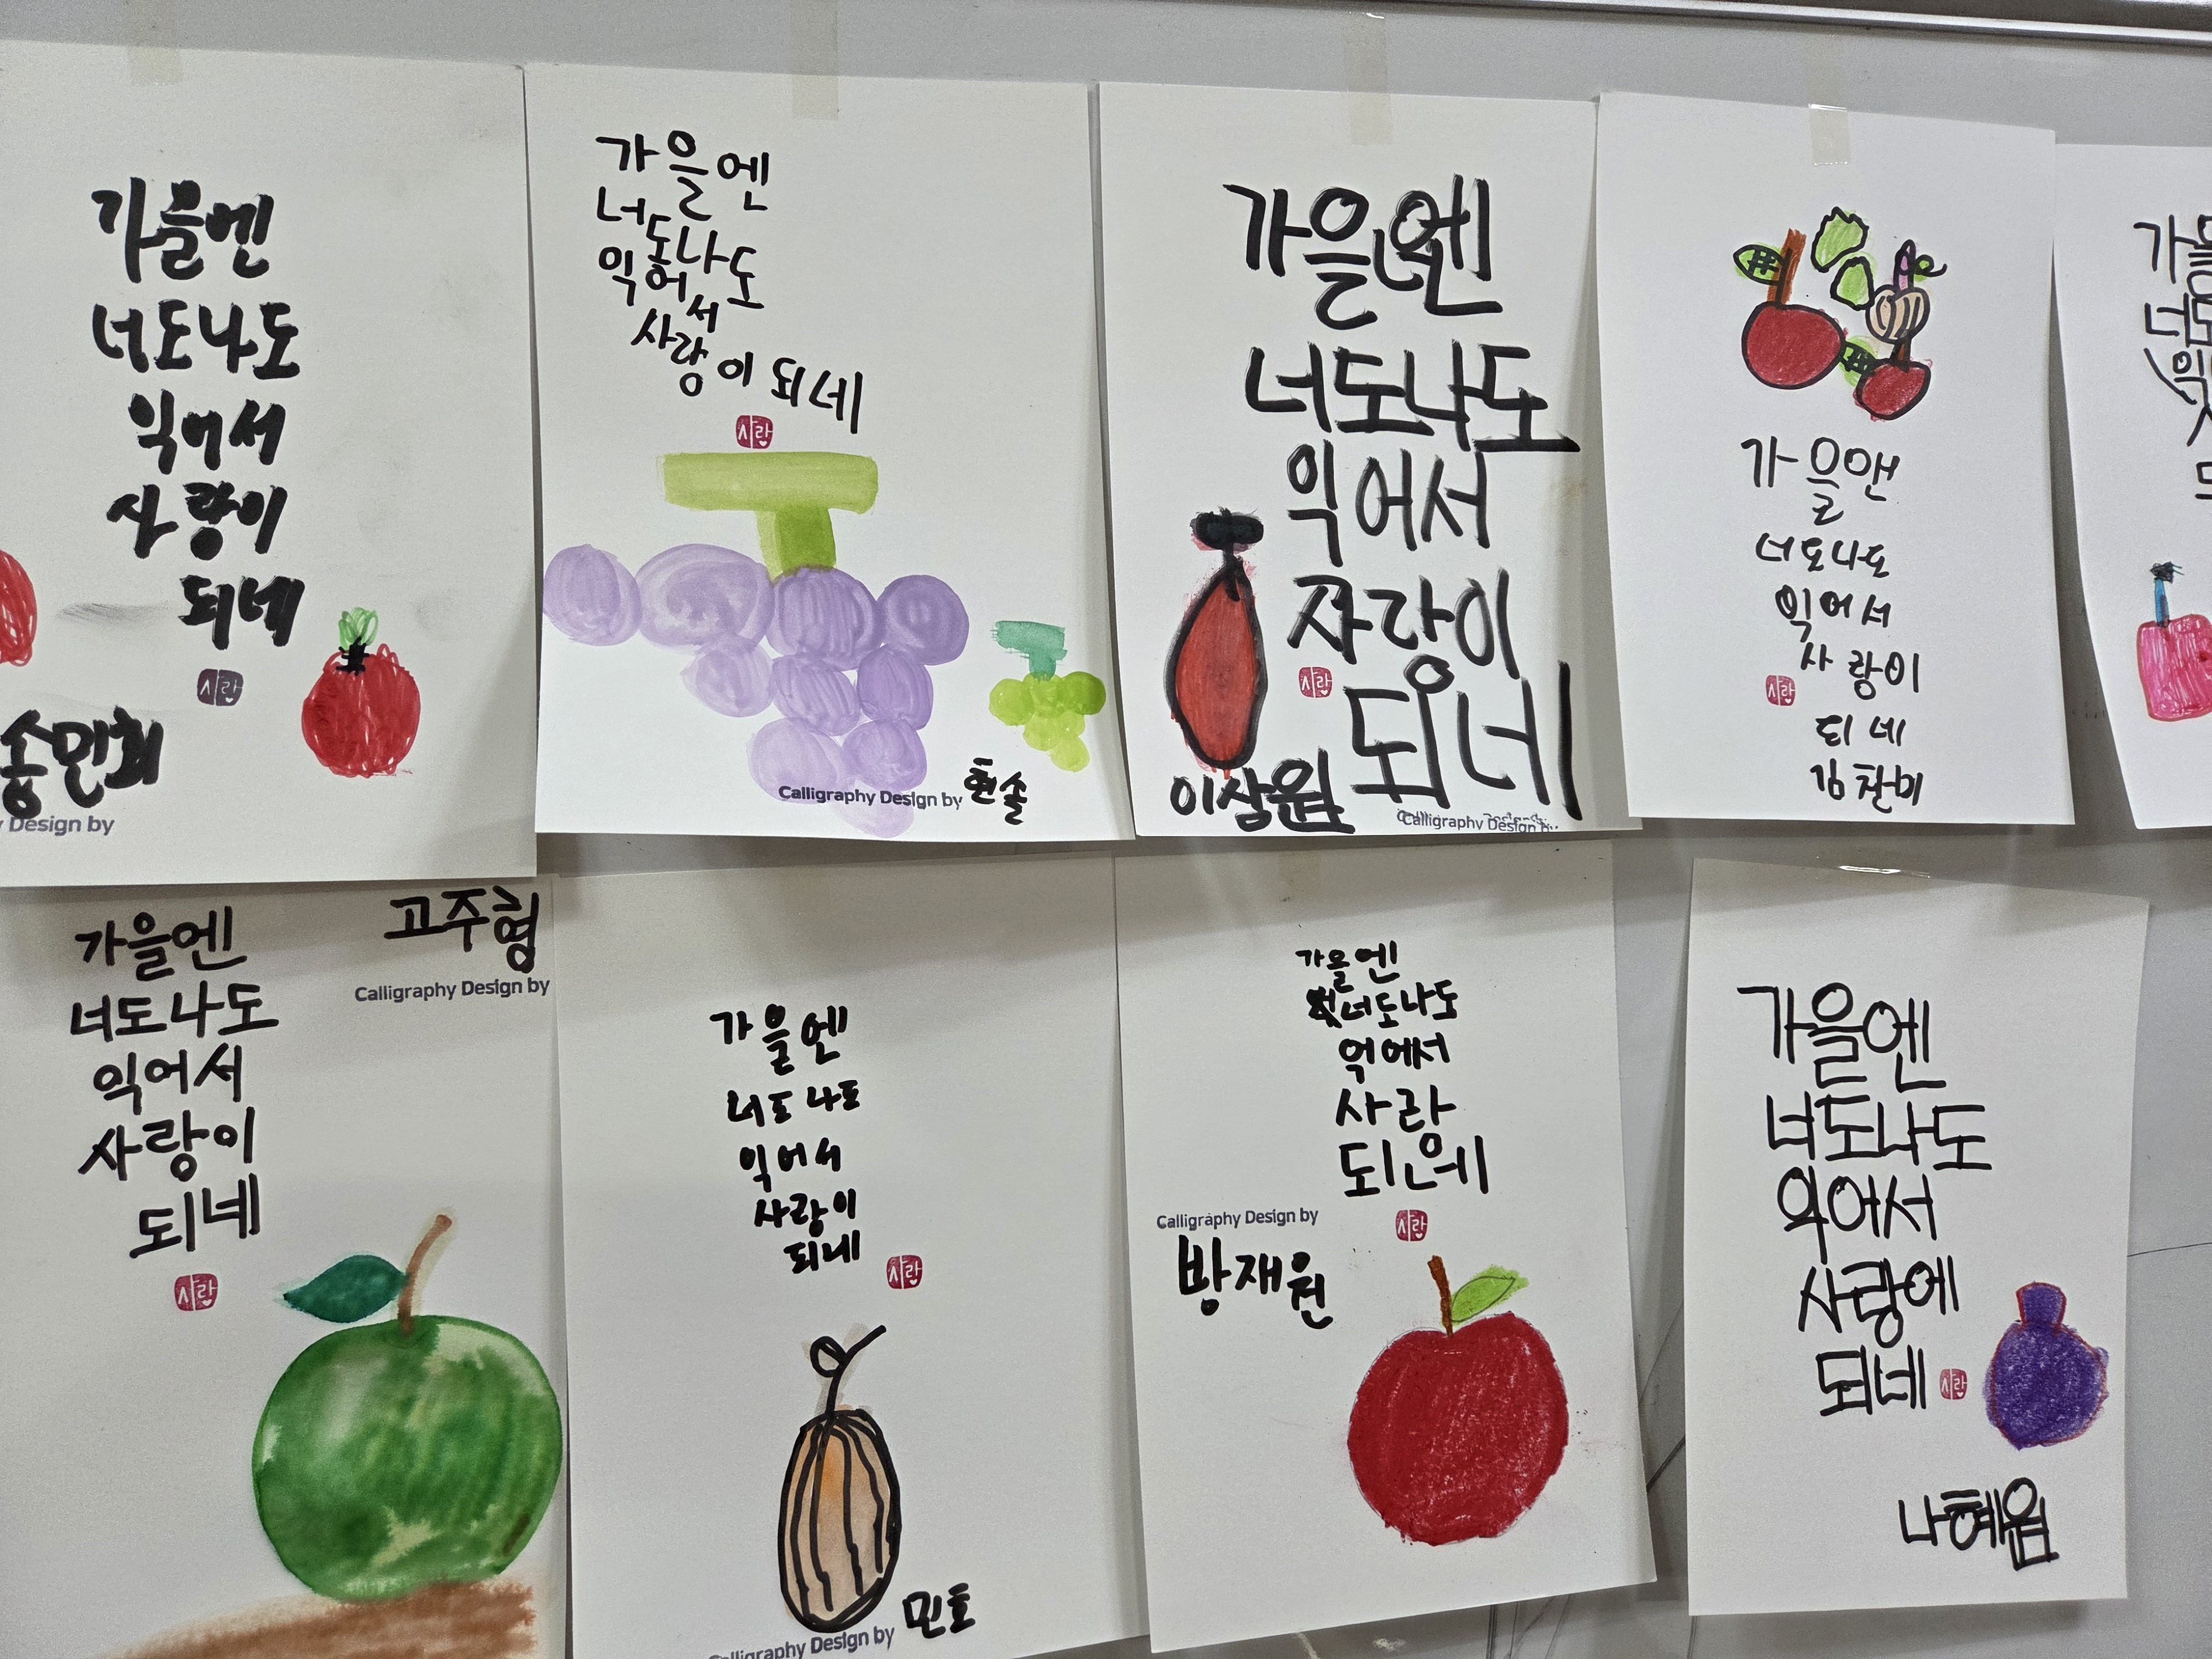 가을엔
너도나도
익어서
사랑이
되네
사랑
송민희
Design by
가을엔
너도나도
익어서
사랑이되네
사랑
Calligraphy Design by 현솔
가을엔
너도나도
익어서
사랑이
되네
사랑
이삼원
Calligraphy Design by
가을앤
너도나도
익어서
사랑이
사랑
되네
김찬미
고주형
Calligraphy Design by
가을엔
너도나도
익어서
사랑이
되네
사랑
가을엔
너도나도
익어서
사랑이
되네
사랑
Calligraphy Design by 민호
가을엔
너도나도
익에서
사랑
되네
사랑
Calligraphy Design by
방재원
가을엔
너도나도
익어서
사랑에
되네
사랑
나혜원